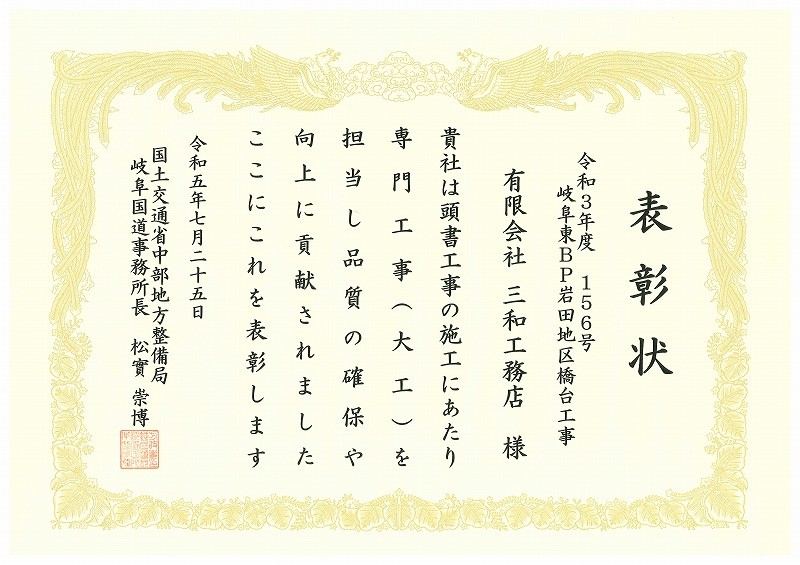 表彰状
令和３年度　１５６号
岐阜東ＢＰ岩田地区橋台工事
有限会社　三和工務店　様
貴社は頭書工事の施工にあたり
専門工事（大工）を
担当し品質の確保や
向上に貢献されました
ここにこれを表彰します
令和五年七月二十五日
国土交通省中部地方整備局
岐阜国道事務所長　松實　崇博